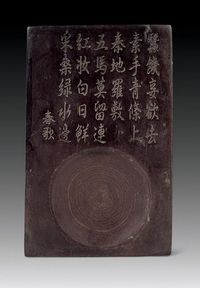 蠶饑妾欲去
素手青條上
秦地羅敷
五馬莫留連
紅妝白日鮮
采桑綠水邊
春歌